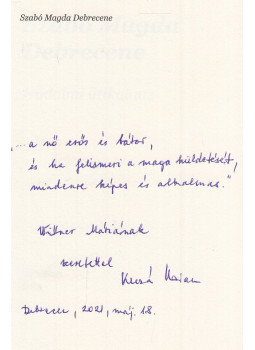 Szabó Magda Debrecene
"...a nő erős és bátor,
és ha felismeri a maga küldetését,
mindenre képes és alkalmas."
Wittner Máriának
szeretettel
Debrecen, 2021, máj. 18.